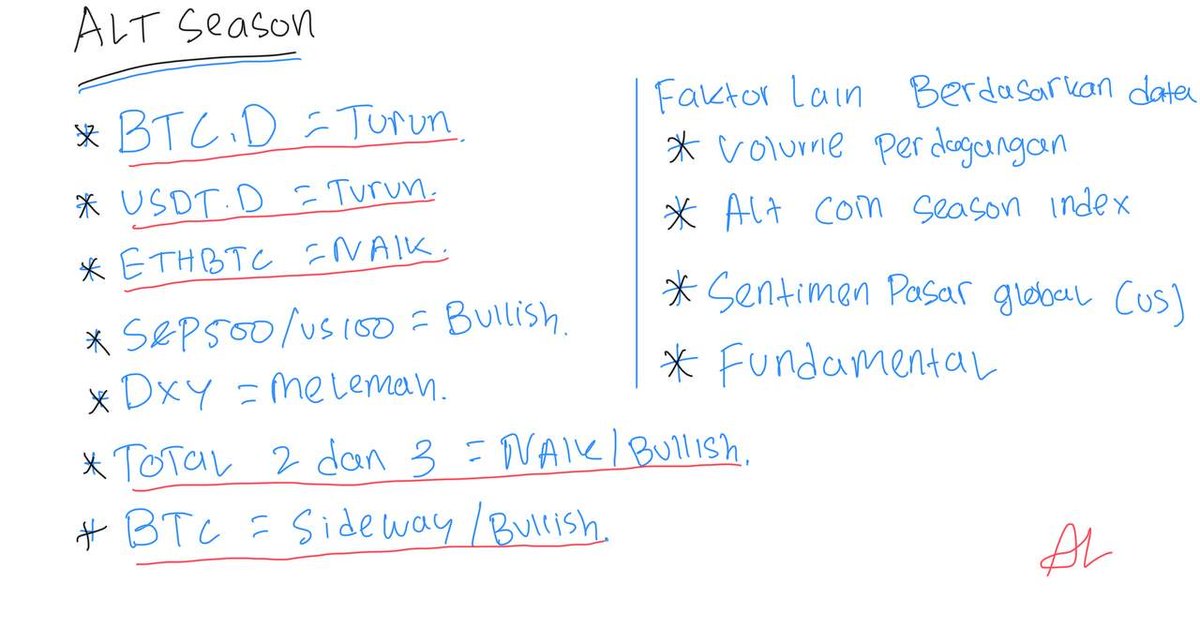 ALT Season
* BTC.D = Turun.
* USDT.D = Turun.
* ETHBTC = NAIK.
* S&P500/US100 = Bullish.
* DXY = Melemah.
* TOTAL 2 dan 3 = NAIK/Bullish.
* BTC = Sideway/Bullish.
Faktor Lain Berdasarkan data
* Volume Perdagangan
* Alt coin Season Index
* Sentimen Pasar global (US)
* Fundamental
AL